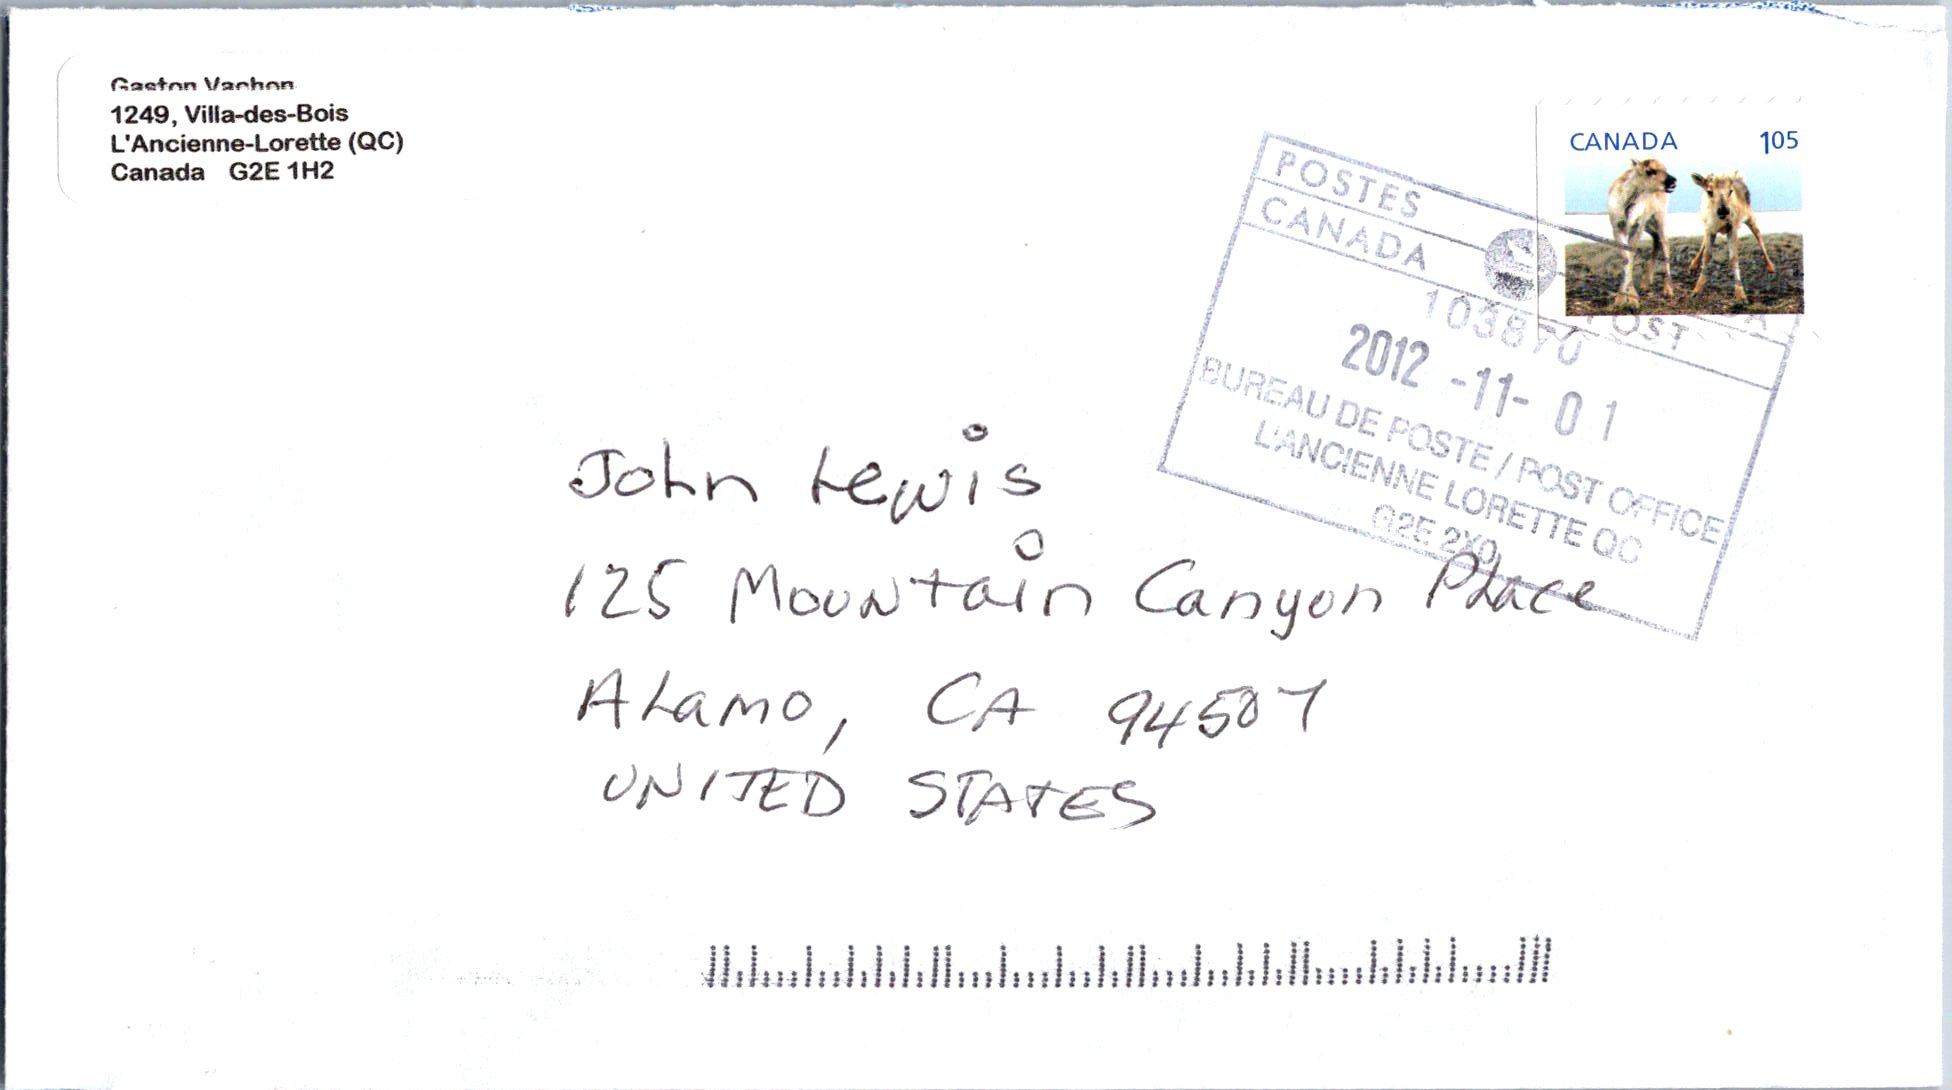 Gaston Vachon
1249, Villa-des-Bois
L'Ancienne-Lorette (QC)
Canada G2E 1H2
CANADA 105
POSTES
CANADA
POST
103870
2012 -11- 01
BUREAU DE POSTE / POST OFFICE
L'ANCIENNE LORETTE QC
G2E 2X0
John Lewis
125 Mountain Canyon Place
Alamo, CA 94507
UNITED STATES